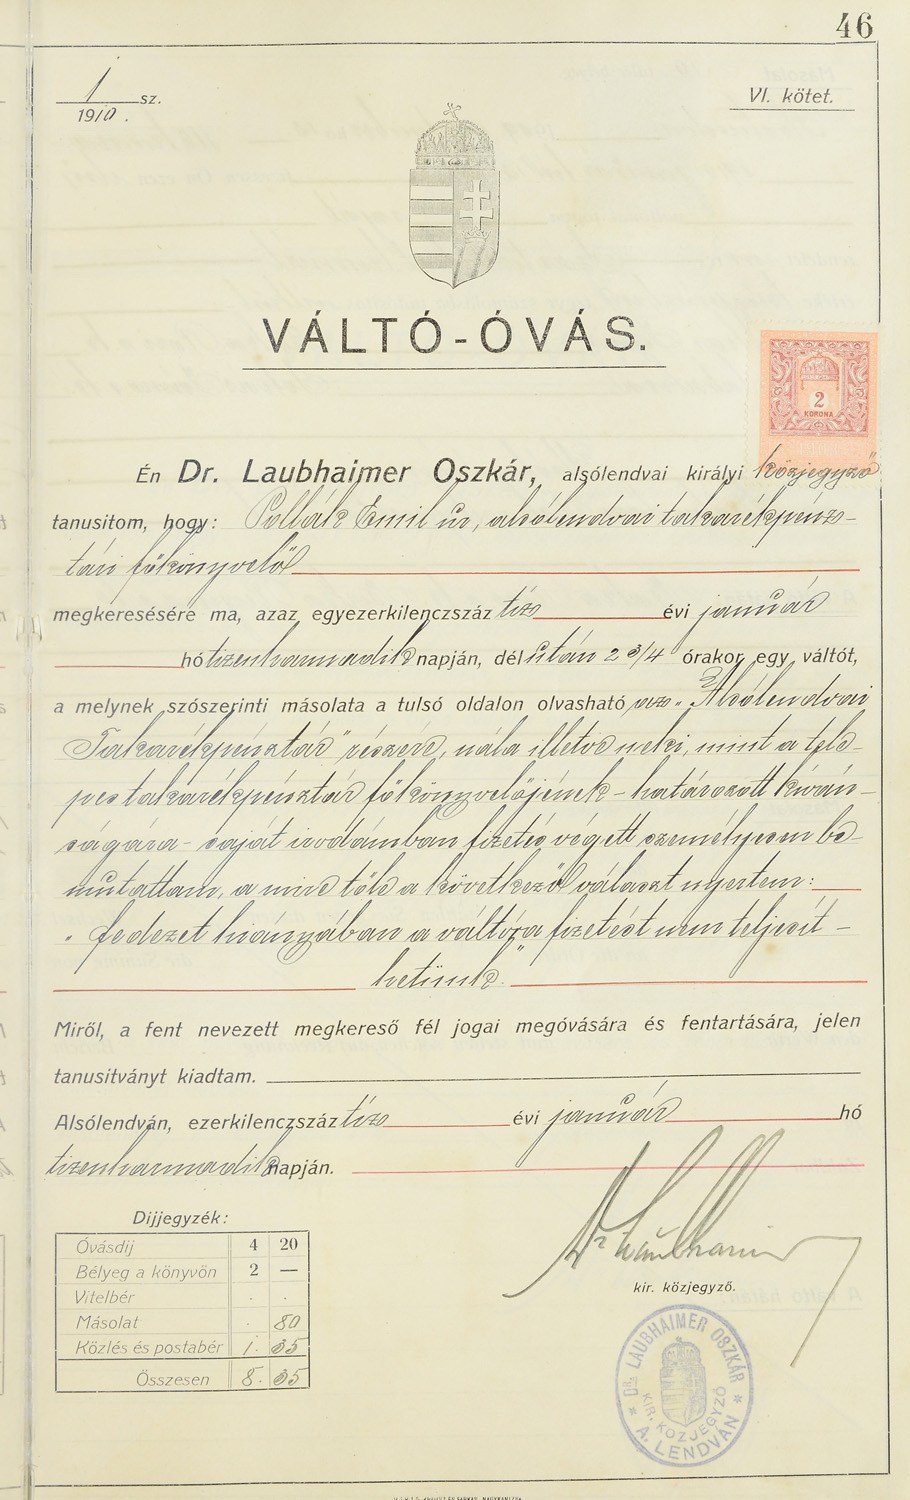 46
1 sz.
1910.
VI. kötet.
VÁLTÓ-ÓVÁS.
2
KORONA
Én Dr. Laubhaimer Oszkár, alsólendvai királyi közjegyző
tanusitom, hogy: Pollák Emil úr, alsólendvai takarékpénz-
tári főkönyvelő
megkeresésére ma, azaz egyezerkilenczszáz tíz évi január
hó tizenharmadik napján, dél után 2 3/4 órakor egy váltót,
a melynek szószerinti másolata a tulsó oldalon olvasható, az „Alsólendvai
Takarékpénztár" részére, nála illetve neki, mint a tele-
pes takarékpénztár főkönyvelőjének - határozott kíván-
ságára - saját irodámban fizetés végett személyesen be-
mutattam, a mire tőle a következő választ nyertem:
„fedezet hiányában a váltóra fizetést nem teljesít-
hetünk."
Miről, a fent nevezett megkereső fél jogai megóvására és fentartására, jelen
tanusitványt kiadtam.
Alsólendván, ezerkilenczszáz tíz évi január hó
tizenharmadik napján.
Dr Laubhaimer
kir. közjegyző.
Dijjegyzék:
Óvásdij 4 20
Bélyeg a könyvön 2 —
Vitelbér . .
Másolat . 80
Közlés és postabér 1. 35
Összesen 8. 35
* DR. LAUBHAIMER OSZKÁR *
KIR. KÖZJEGYZŐ
A. LENDVÁN